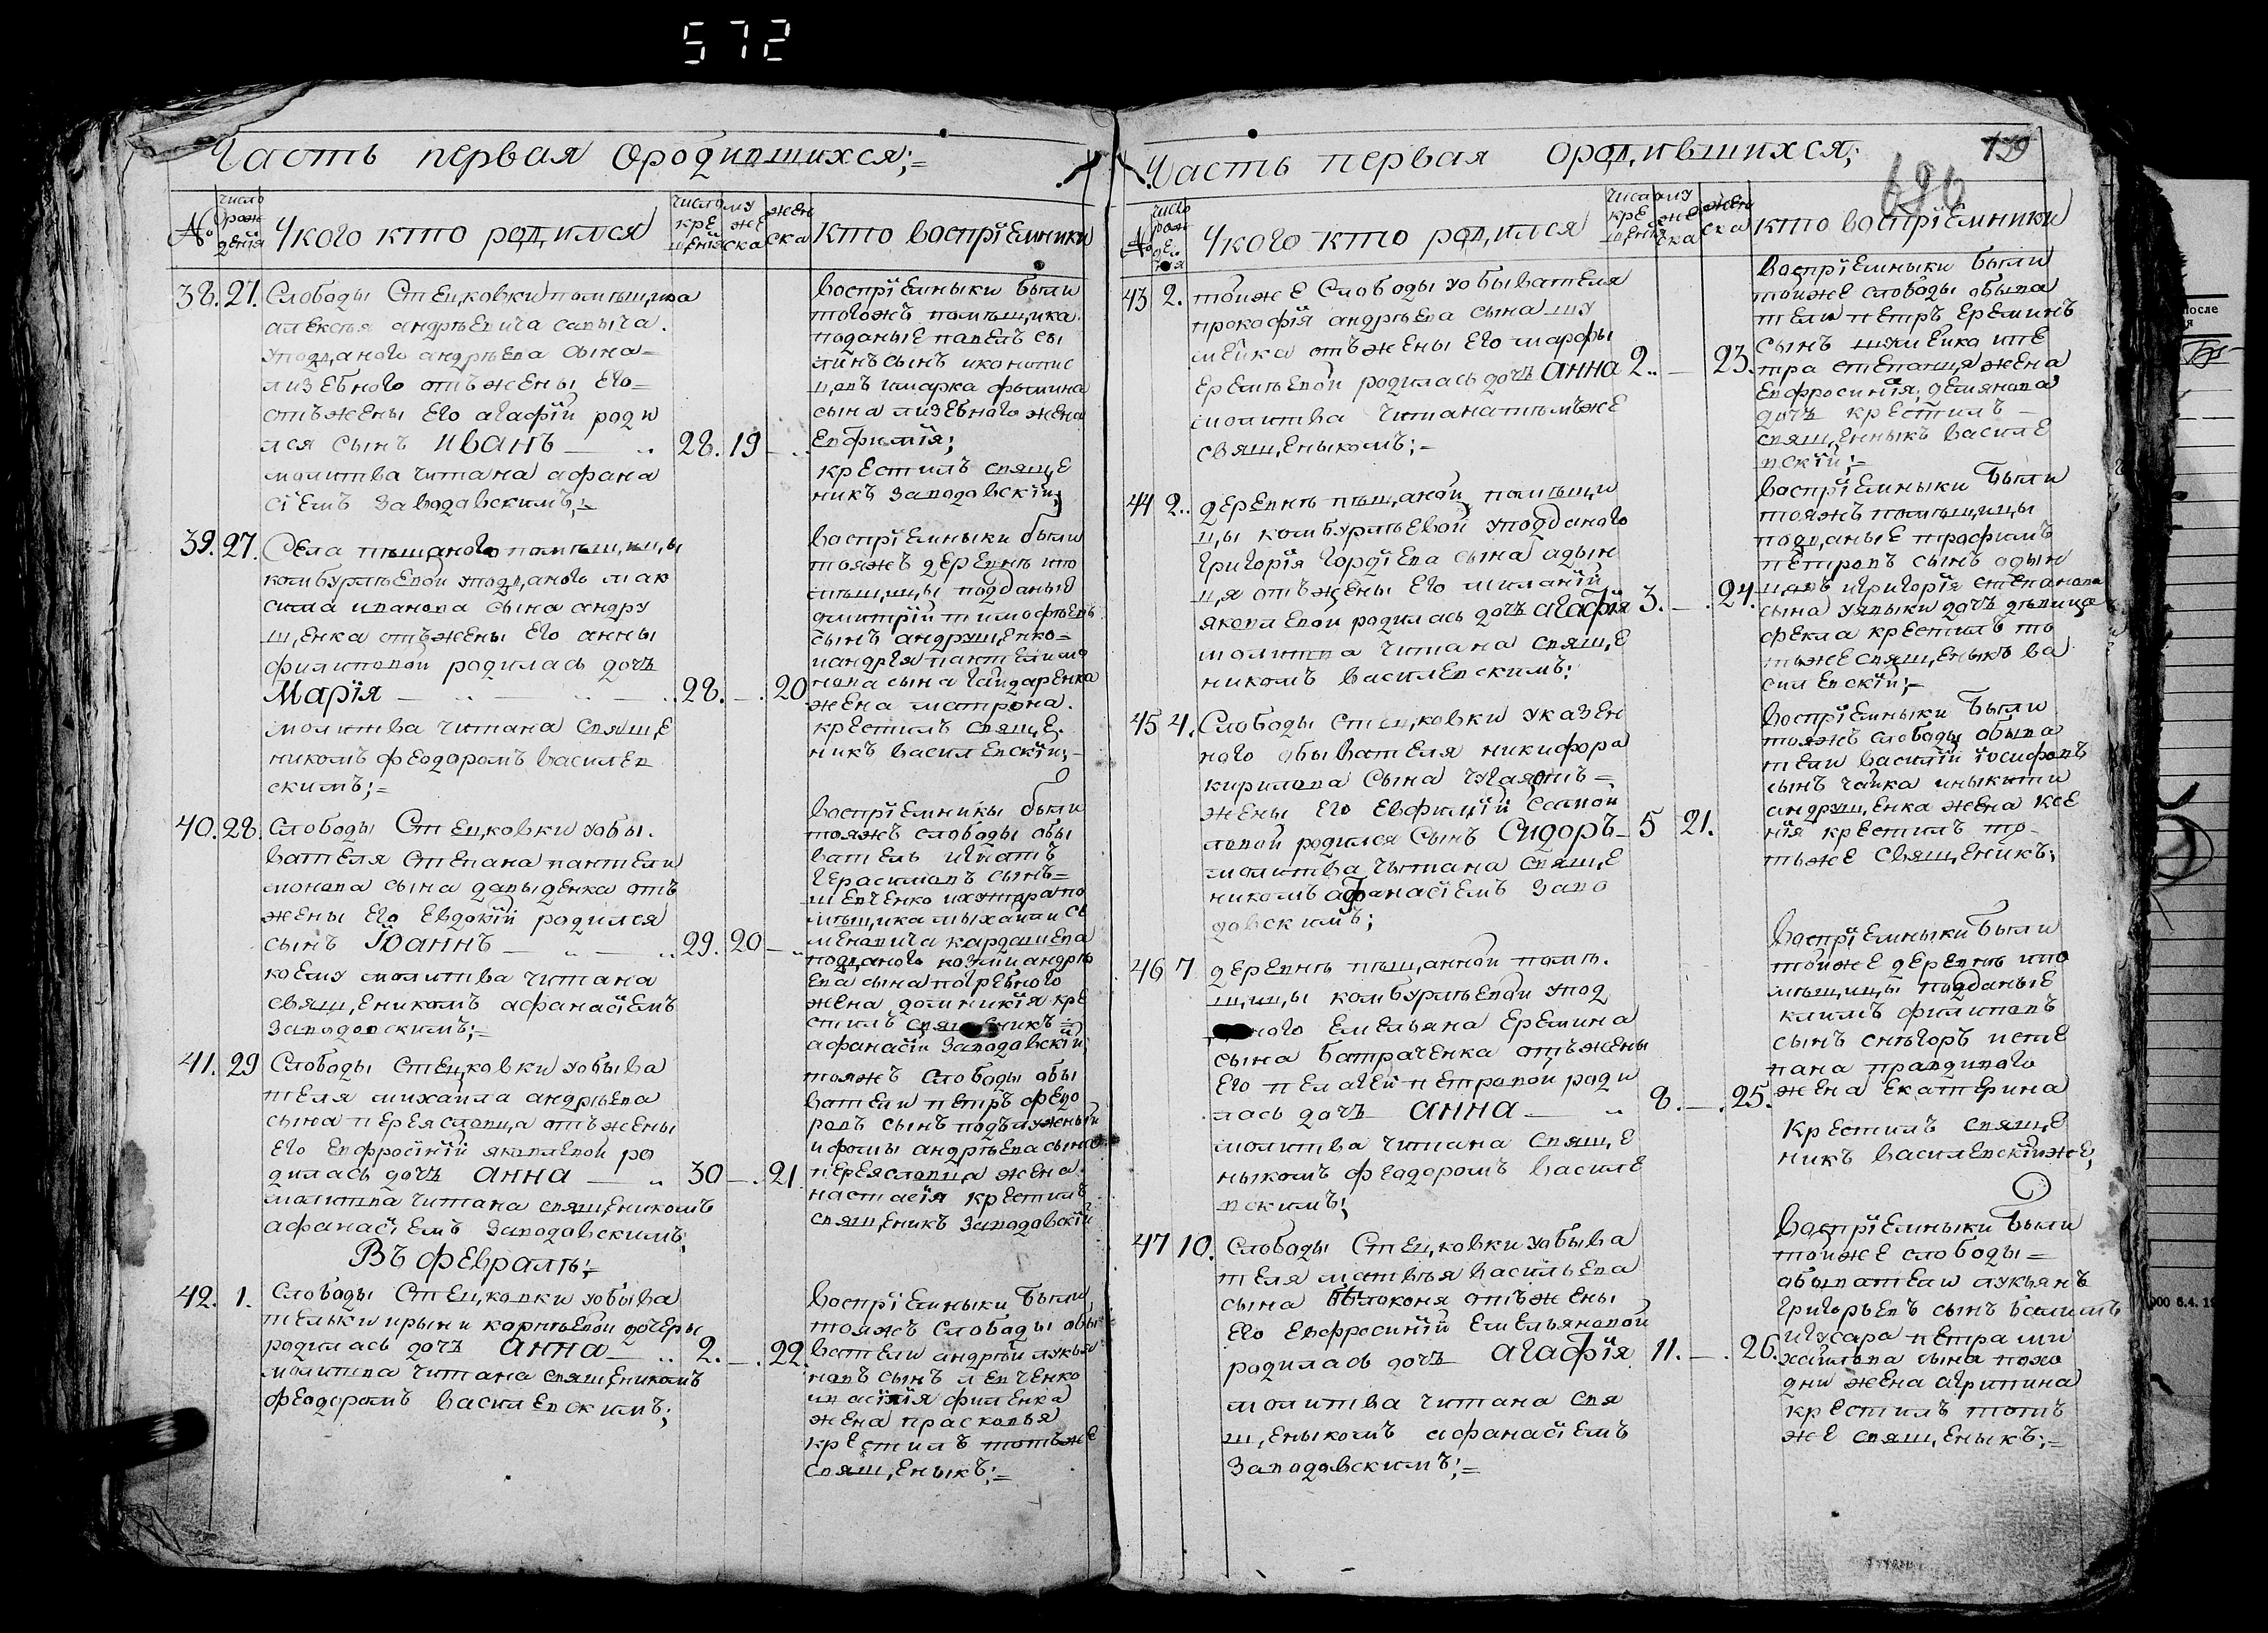 572
Часть первая Ородившихся;=
№
число
рож
дения
Укого кто родился
число
кре
щения
му
же
ска
жен
ска
кто воспрїемники
38. 27. Слободы Стецковки помещика
алексея андреевича савича.
уподданого андреева сына=
лизебного отъ жены его=
отъ жены его агафїи роди
лся сынъ иванъ — 28. 19 —
молитва читана афана
сїемъ Заводовскимъ;=
воспрїемныки были
тогожъ помещика
поданые павелъ
сынъ
имарка фомина
сына лизебного жена
Евфимїя;
крестилъ свяще
никъ заводовскїй;
39. 27. Села пещаного помещицы
камбурлеевой уподданого мак
сима иванова сына андру
щенка отъ жены его анны
филиповой родилась дочь
Марїя — 28. — 20.
молитва читана свяще
никомъ феодоромъ василев
скимъ;=
воспрїемныки были
тояжъ деревне по
мещицы подданыи
димитрїй тимофеевъ
сынъ андрущенко=
иандрея пантелимо
нона сына гайдаренка
жена матрона.
крестилъ свяще
никъ василевскїй;-
40. 28. Слободы Стецковки уобы.
вателя Степана пантели
монова сына давыденка отъ
жены его евдокїи родился
сынъ Їоаннъ — 29. 20 —
коему молитва читана
священикомъ афанасїемъ
Заводовскимъ;=
воспрїемникы были
тояжъ слободы обы
ватель игнатъ
герасимовъ сынъ=
шевченко
мещика мыхайли се
меновича кардашева
подданого козми андре
ева сына погребного
жена домникїя кре
стилъ священикъ=
афанасїй Заводовскїй;
41. 29 Слободы Стецковки уобыва
теля михаила андреева
сына переяславца отъ жены
его евфросїнїй яковлевой ро
дилась дочь анна — 30 — 21.
молитва читана священикомъ
афанасїемъ Заводовскимъ;
тояжъ слободы обы
ватели петръ федо
ровъ сынъ подълужный
ифомы андреева сына
переяславца жена
настасїя крестилъ
священикъ заводовскїй
Въ феврале;=
42. 1. Слободы Стецковки уобыва
тельки ирыни корнеевой дочеры
родилась дочь анна — 2. — 22.
молитва читана священикомъ
феодоромъ василевскимъ;
воспрїемныки были
тояжъ слободы обы
ватели андрей лукья
новъ сынъ левченко
филенка
жена прасковья
крестилъ тотъже
священыкъ;=
Часть первая ородившихся;
139
696
№
число
рож
де
ния
Укого кто родился
числа
кре
щения
му
же
ска
жен
ска
кто воспрїемники
43 2. тойже Слободы уобывателя
прокофїя андреева сына шу
мейка отъ жены его марфы
еремеевой родилась дочь анна 2.. — 23.
молитва читана темъже
священыкомъ;=
воспрїемныки были
тойже слободы обыва
тели петръ ереминъ
сынъ шумейко ипе
тра степанця жена
евфросинїя, демянова
дочь крестилъ —
священныкъ василе
вскїй;=
44 2.. деревне пещаной помещи
цы камбурлеевой уподданого
григорїя гордїева сына адын
ця отъ жены его миланїй
яковлевой родилась дочь агафїя 3. — 24.
молитва читана свяще
никомъ василевскимъ;
воспрїемныки были
тояжъ помещицы
подданые трофимъ
петровъ сынъ адын
цовъ игригорїя степанова
сына дочь девица
фекла крестилъ то
тъже священыкъ ва
силевскїй;-
45 4. Слободы Стецковки указен
ного обывателя никифора
кирилова сына отъ=
жены его евфимїй
родился сынъ Сидоръ — 5 21.
молитва чытана свяще
никомъ афанасїемъ заво
довскимъ;
воспрїемныки были
тояжъ слободы обыва
тели василїй їосифовъ
сынъ чайка иныкити
андрущенка жена ксе
нїя крестилъ то-
тъже священикъ;
46 7. деревне пещанной поме.
щицы камбурлеевой упод
ного емельяна еремина
сына батраченка отъ жены
его пелагей петровой роди
лась дочь анна — 8. — 25.
молитва читана свяще
ныкомъ феодоромъ василе
вскимъ;
воспрїемныки были
тойже деревне по
мещицы подданые
климъ филиповъ
сынъ снегоръ исте
пана правдивого
жена екатерина
крестилъ свяще
никъ василевскїйже;
47 10. Слободы Стецковки уобыва
теля матвея васильева
сына белоконя отъ жены
его евфросинїй емельяновой
родилась дочь агафїя 11. — 26.
молитва читана свя
щеныкомъ афанасїемъ
Заводовскимъ;=
воспрїемныки были
тойже слободы=
обыватели лукьянъ
григорьевъ сынъ
игусара петра ми
хайлова сына похо
дни жена агрипина
крестилъ тотъ
же священыкъ;=
после